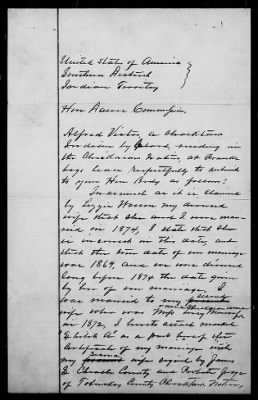 United States of America
Southern District
Indian Territory
Hon Dawes Commission.
Alfred Victor, a Chocktaw
Indian by blood, residing in
the Chickasaw Nation, at
begs leave respectfully to submit
to your Hon Body as follows;
Inasmuch as it is claimed
by Lizzie Wilson my divorced
wife that she and I were mar-
ried in 1874, I state that she
is incorrect in this date, but
that the true date of our marriage
was 1869, and we were divorced
long before 1874 the date given
by her of our marriage, I
was married to my second
wife who was Miss
in 1872, I hereto attach marked
Exhibit "A" as a part hereof the
Certificate of my marriage with
my second wife signed by James
E County and Probate Judge
of Tobucksy County Chocktaw Nation,